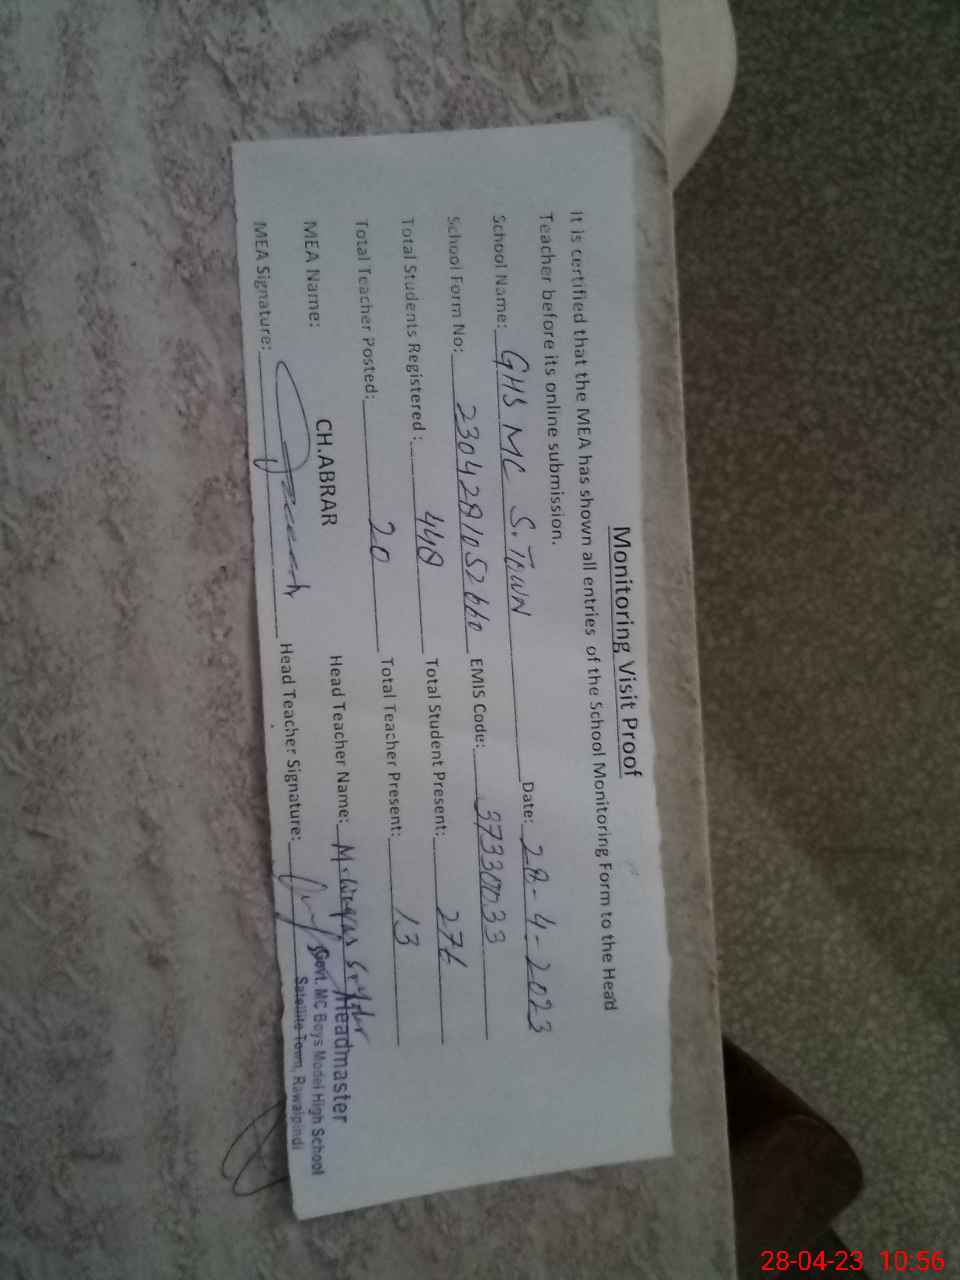 Monitoring Visit Proof
It is certified that the MEA has shown all entries of the School Monitoring Form to the Head
Teacher before its online submission.
School Name: GHS MC S. TOWN Date: 28-4-2023
School Form No: 2304281052660 EMIS Code: 37330033
Total Students Registered: 448 Total Student Present: 276
Total Teacher Posted: 20 Total Teacher Present: 13
MEA Name: CH.ABRAR Head Teacher Name:
MEA Signature: Head Teacher Signature:
Headmaster
Govt. MC Boys Model High School
Satellite Town, Rawalpindi
28-04-23 10:56